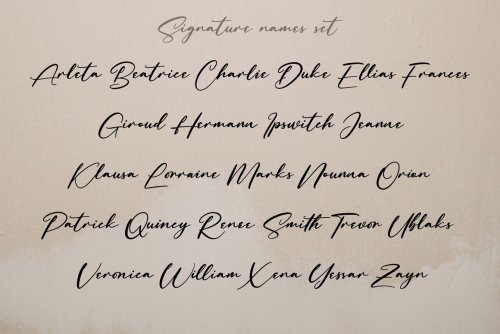 Signature names set
Arleta Beatrice Charlie Duke Ellias Frances
Giroud Hermann Ipswitch Jeanne
Klausa Lorraine Marks Nounna Orion
Patrick Quincy Renee Smith Trevor Ublaks
Veronica William Xena Yessar Zayn